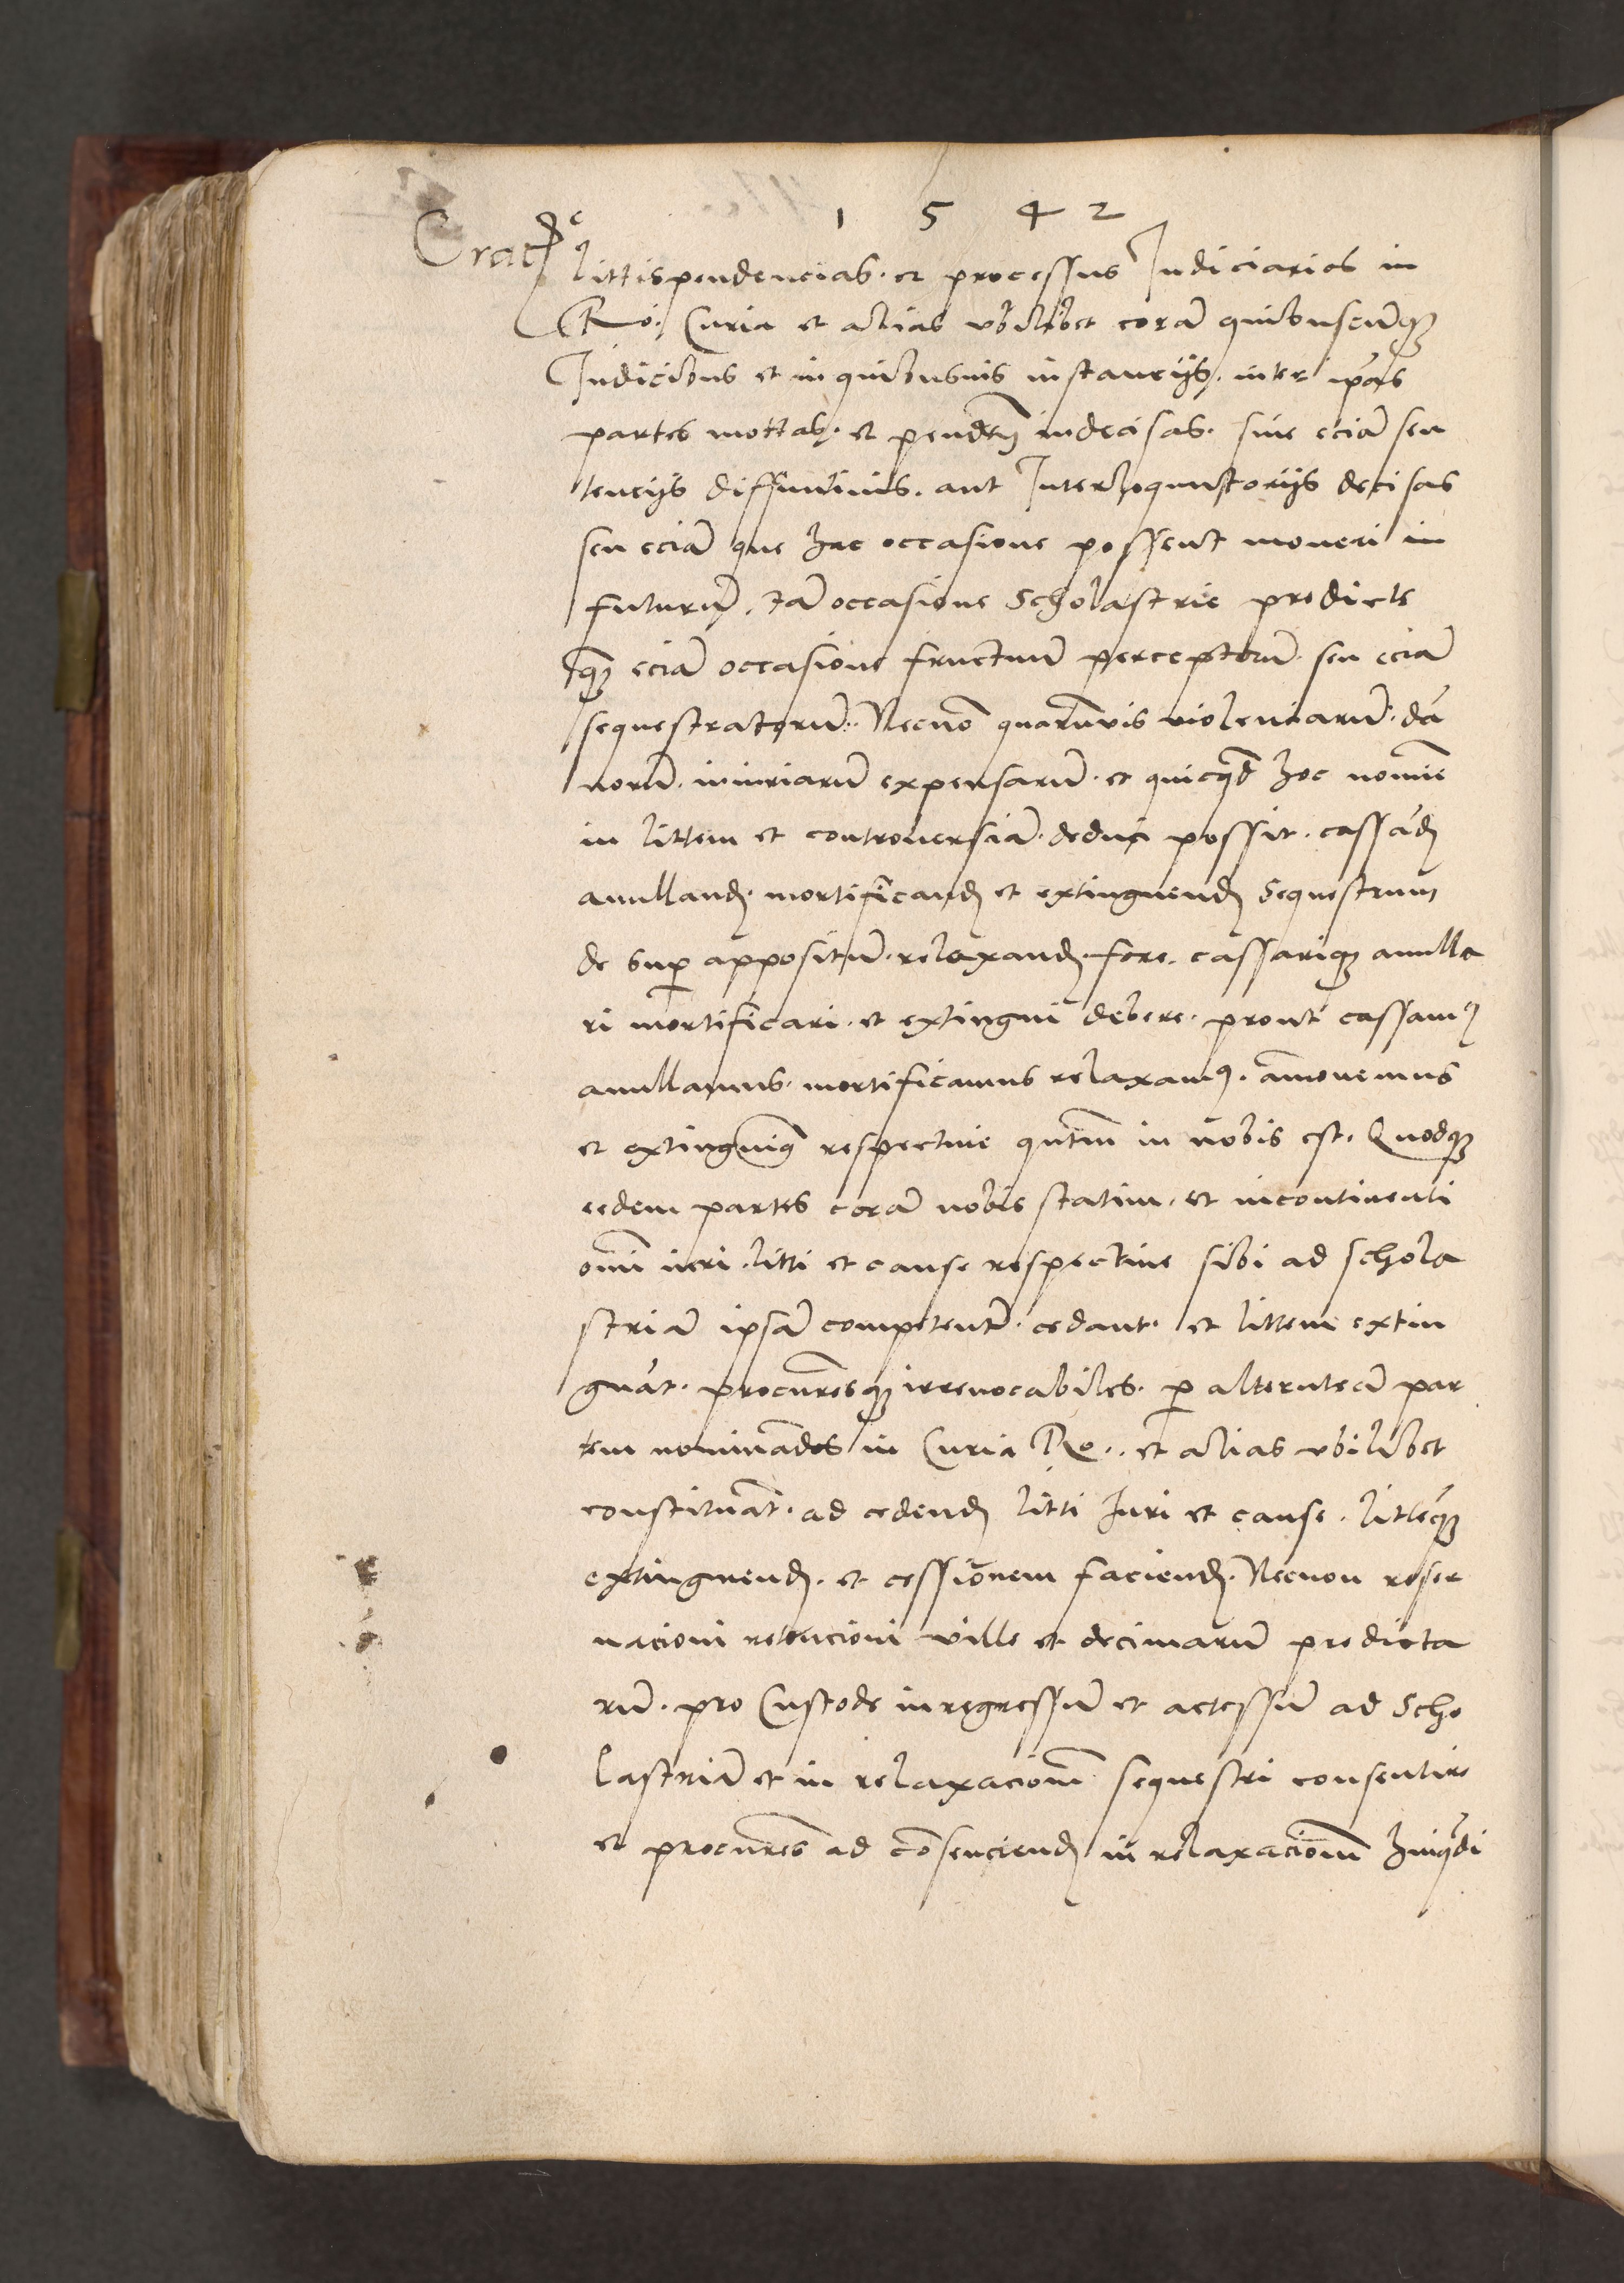 1 5 4 2
Crac
littispendencias. et processus Judiciarios in
Ro. Curia et alias vbilibet corā quibuscūq3
Judicibus et in quibusuis instancijs. inter ip̄as
partes mottas. et penden̄ indecisas. siue eciā sen
tencijs diffinitiuis. aut Interloquutorijs decisas
seu eciā que hac occasione possent moueri in
futurū. tā occasione Scholastrie predicte
q̄3 eciā occasione fructuū perceptorū. seu eciā
sequestratorū. Necnō quarūuis violenciarū. dā
norū. iniuriarū expensarū. et quicq̄d hoc nomīe
in littem et controuersiā. deduci possit. cassād
anulland. mortificand et extinguend Sequestrum
de sup appositū. relaxand. fore. cassariq3 anulla
ri mortificari. et extingui debere. prout cassam9
anullamus. mortificamus relaxam9. āmouemus
et extinguim9 respectiue qn̄tum in nobis est. Quodq3
eedem partes corā nobis statim. et incontinenti
om̄i iuri. litti et cause respectiue sibi ad schola
striā ipsā competentē. cedant. et littem extin
guāt. procur̄esq3 irreuocabiles. p alterutrā par
tem nominādos in Curia Ro.. et alias vbilibet
constituāt. ad cedend litti Juri et cause. littēq3
extinguend. et cessionem faciend. Necnon reser
uacioni retencioni ville et decimarū predicta
rū. pro Custode in regressū et accessū ad Scho
lastriā et in relaxacionē sequestri consentire
et procur̄es ad cōsenciend in relaxacionē huiq̄di